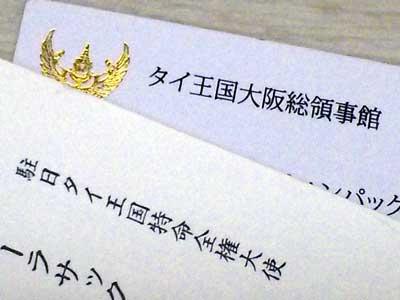 タイ王国大阪総領事館
ンパック
駐日タイ王国特命全権大使
ーラサック